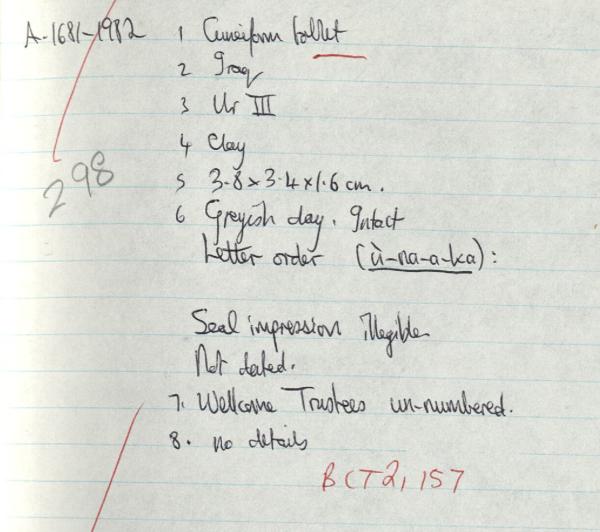 A-1681-1982 1 Cuneiform tablet
2 Iraq
3 Ur III
4 Clay
298
5 3.8 x 3.4 x 1.6 cm.
6 Greyish clay. Intact
Letter order (ù-na-a-ka):
Seal impression illegible
Not dated.
7. Wellcome Trustees un-numbered.
8. no details
BCT2, 157